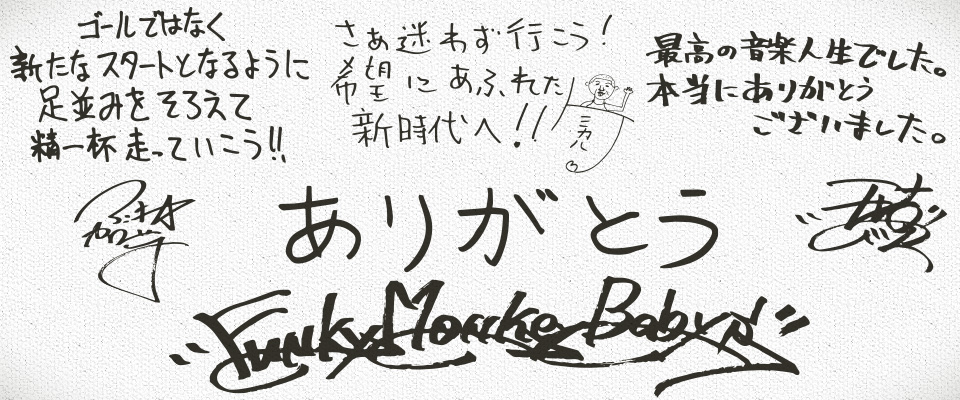 ゴールではなく
新たなスタートとなるように
足並みをそろえて
精一杯走っていこう!!
さぁ迷わず行こう!
希望にあふれた
新時代へ!!
ミカル
最高の音楽人生でした。
本当にありがとう
ございました。
ありがとう
Funky Monkey Babys